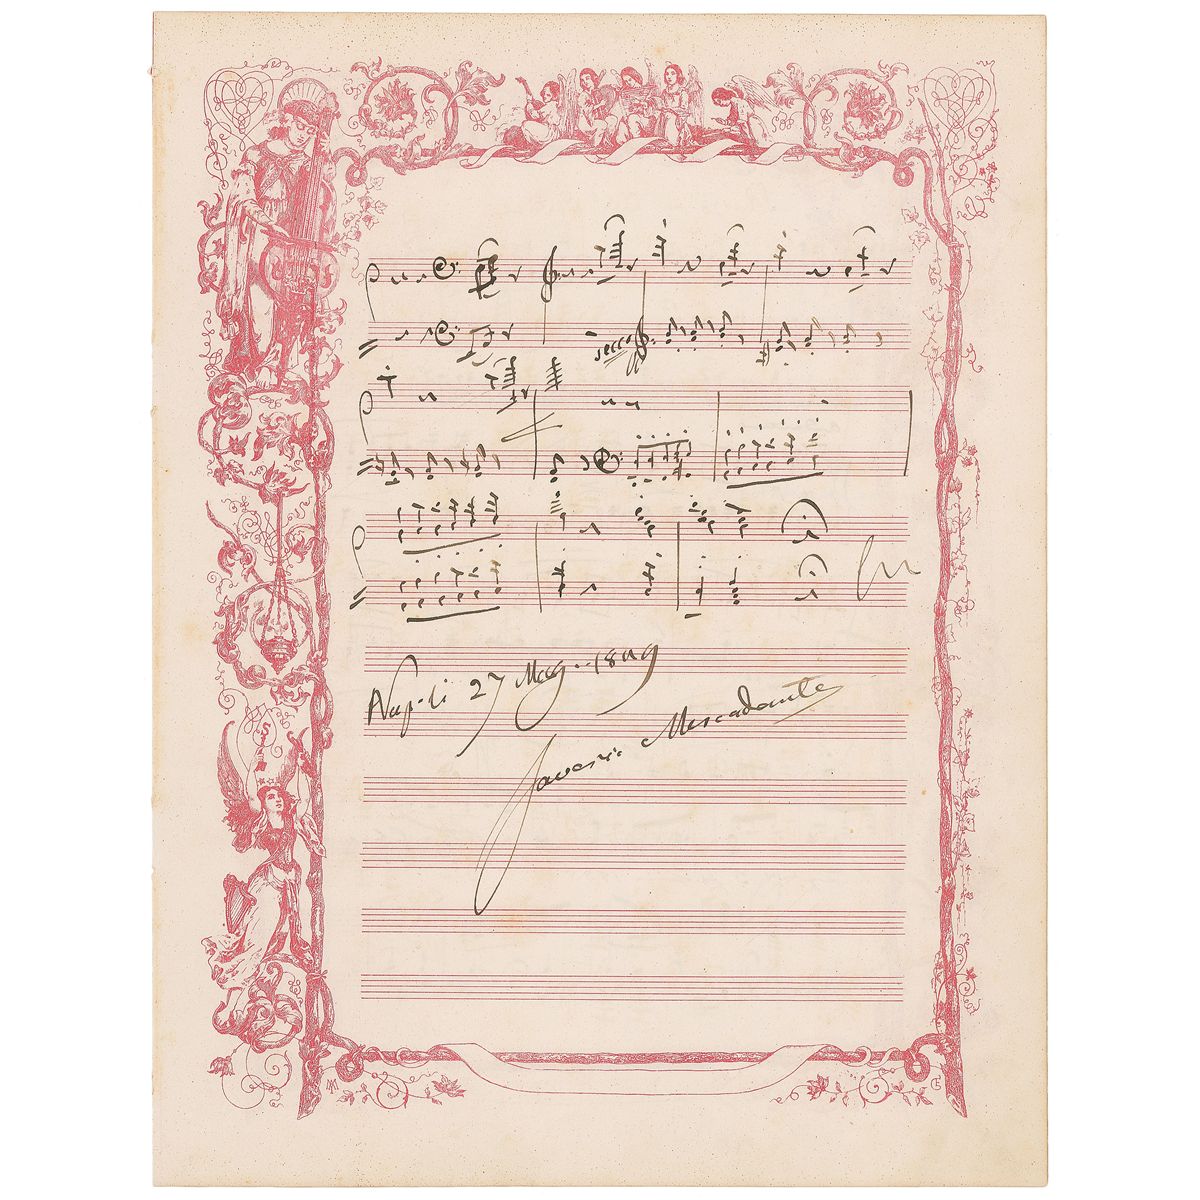 secco
Napoli 27 Mag. 1849
Saverio Mercadante